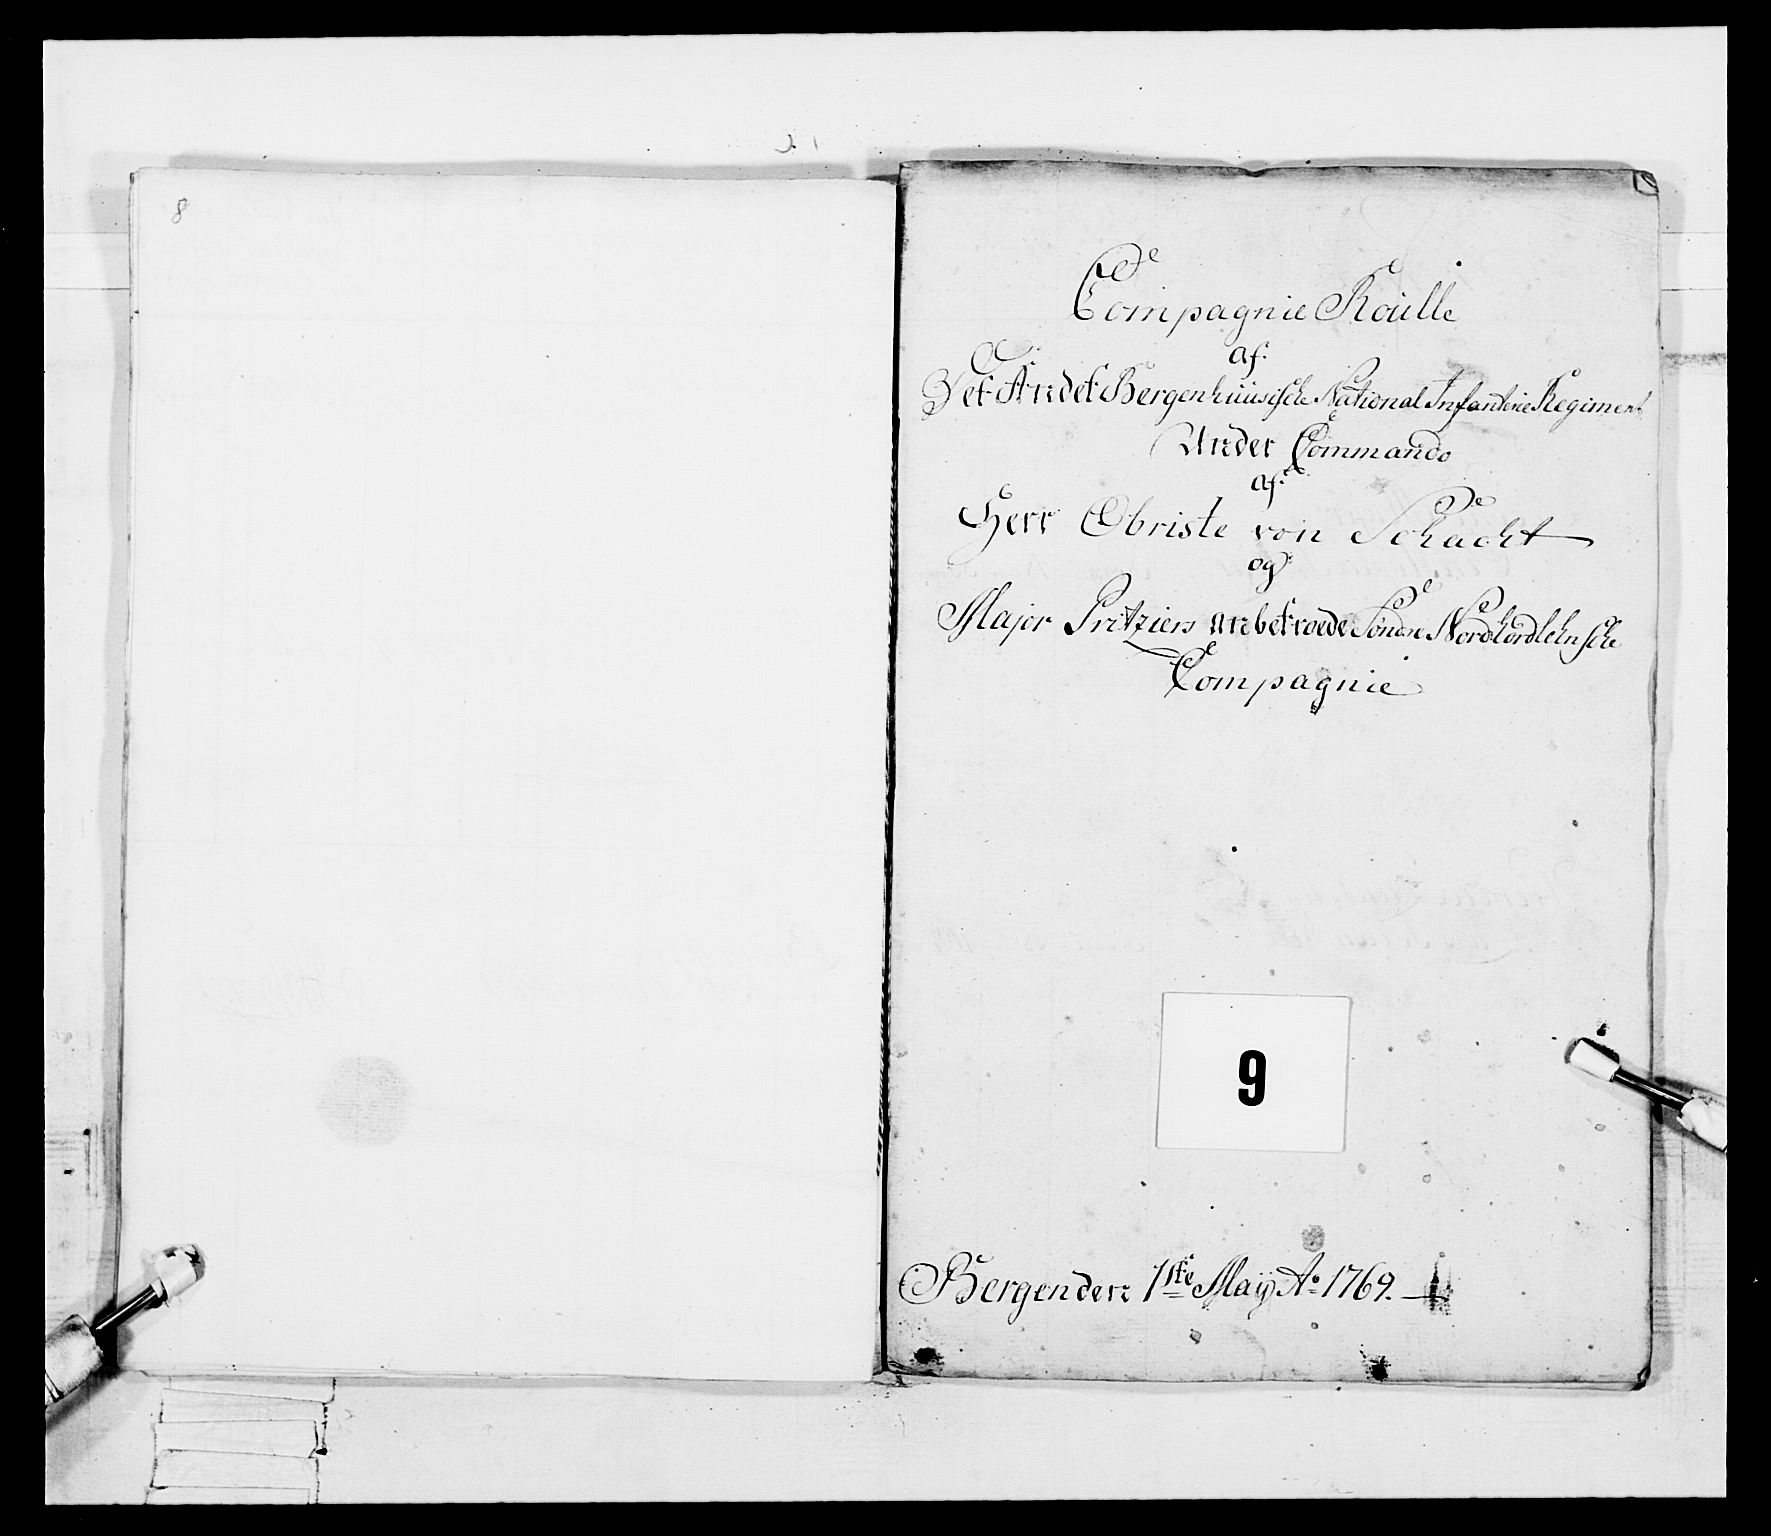 8
Compagnie Roulle
af
Det Andet Bergenhuusiske National Infanterie Regiment
Under Commando
af
Herr Obriste von Schacht
og
Major Pritziers anbetroede Söndre Nordhordlehnske
Compagnie
9
Bergen den 1ste Maÿ Ao 1769.